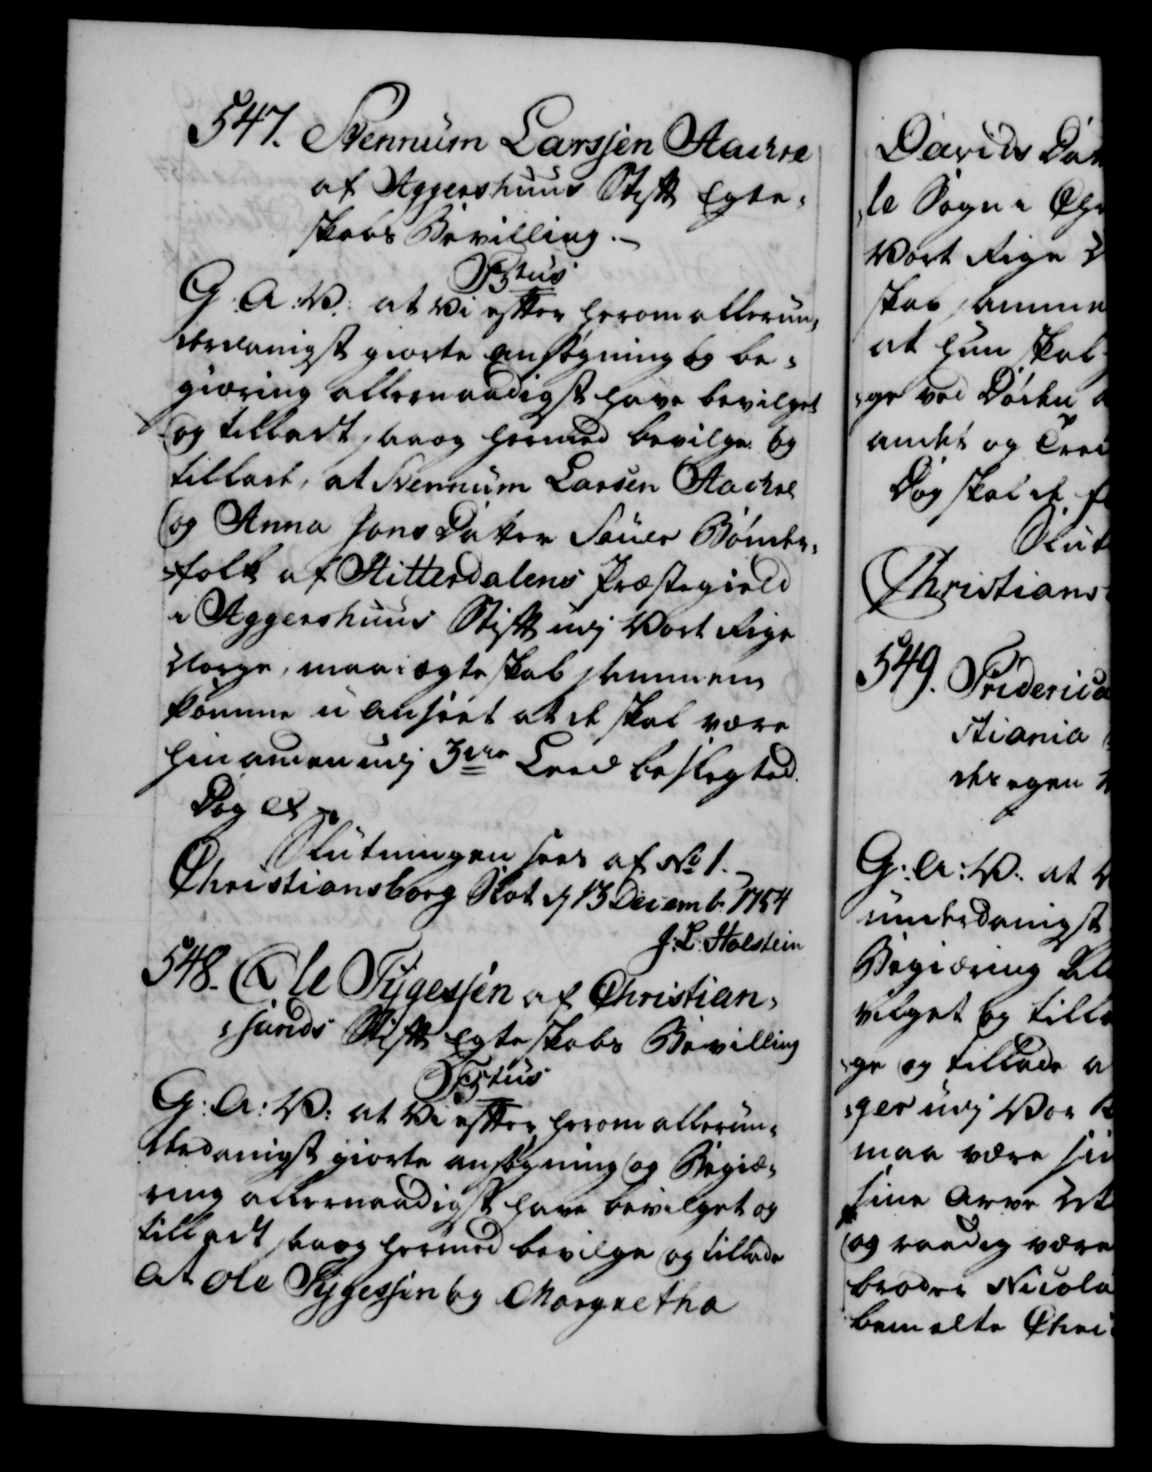 547. Stennúm Larssen Aackre
af Aggershuus Stift Egte-
skabs Bevilling.
F 5tus
G. A: V: at Vi efter herom allerun-
derdanigst giorte ansøgning og be-
giæring allernaadigst have bevilget
og tilladt, saa og hermed bevilge og
tillade, at Stennum Larsen Aackre
og Anna Jons Datter Bønder-
folk af Hitterdalens Præstegield
i Aggershuus Stift udj Vort Rige
Norge, maa i ægteskab sammen
komme uanseet at de skal være
hinanden udj 3die Leed beslegted.
Dog etc
Slutningen sees af No 1.
Christiansborg Slot d 13 Decemb. 1754
J. L. Holstein
548. Ole Tygessen af Christian-
sands Stift Egteskabs Bevilling
F 5tus
G: A: V: at Vi efter herom allerun-
derdanigst giorte ansøgning og Begiæ-
ring allernaadigst have bevilget og
tilladt saa og hermed bevilge og tillade
at Ole Tygessen og Margretha
Davids Dat
le Sogn i Chr
Vort Rige N
skab samme
at hun skal
ge ved Døden
andet og Tred
Dog skal de
Slut
Christians
549. Friderica
stiania
des egen
G: A: V: at V
underdanigst
Begiæring All
vilget og tilla
ge og tillade a
ger udj Vor
maa være sin
sine Arve
og raadig være
broder Nicola
bemelte Chri